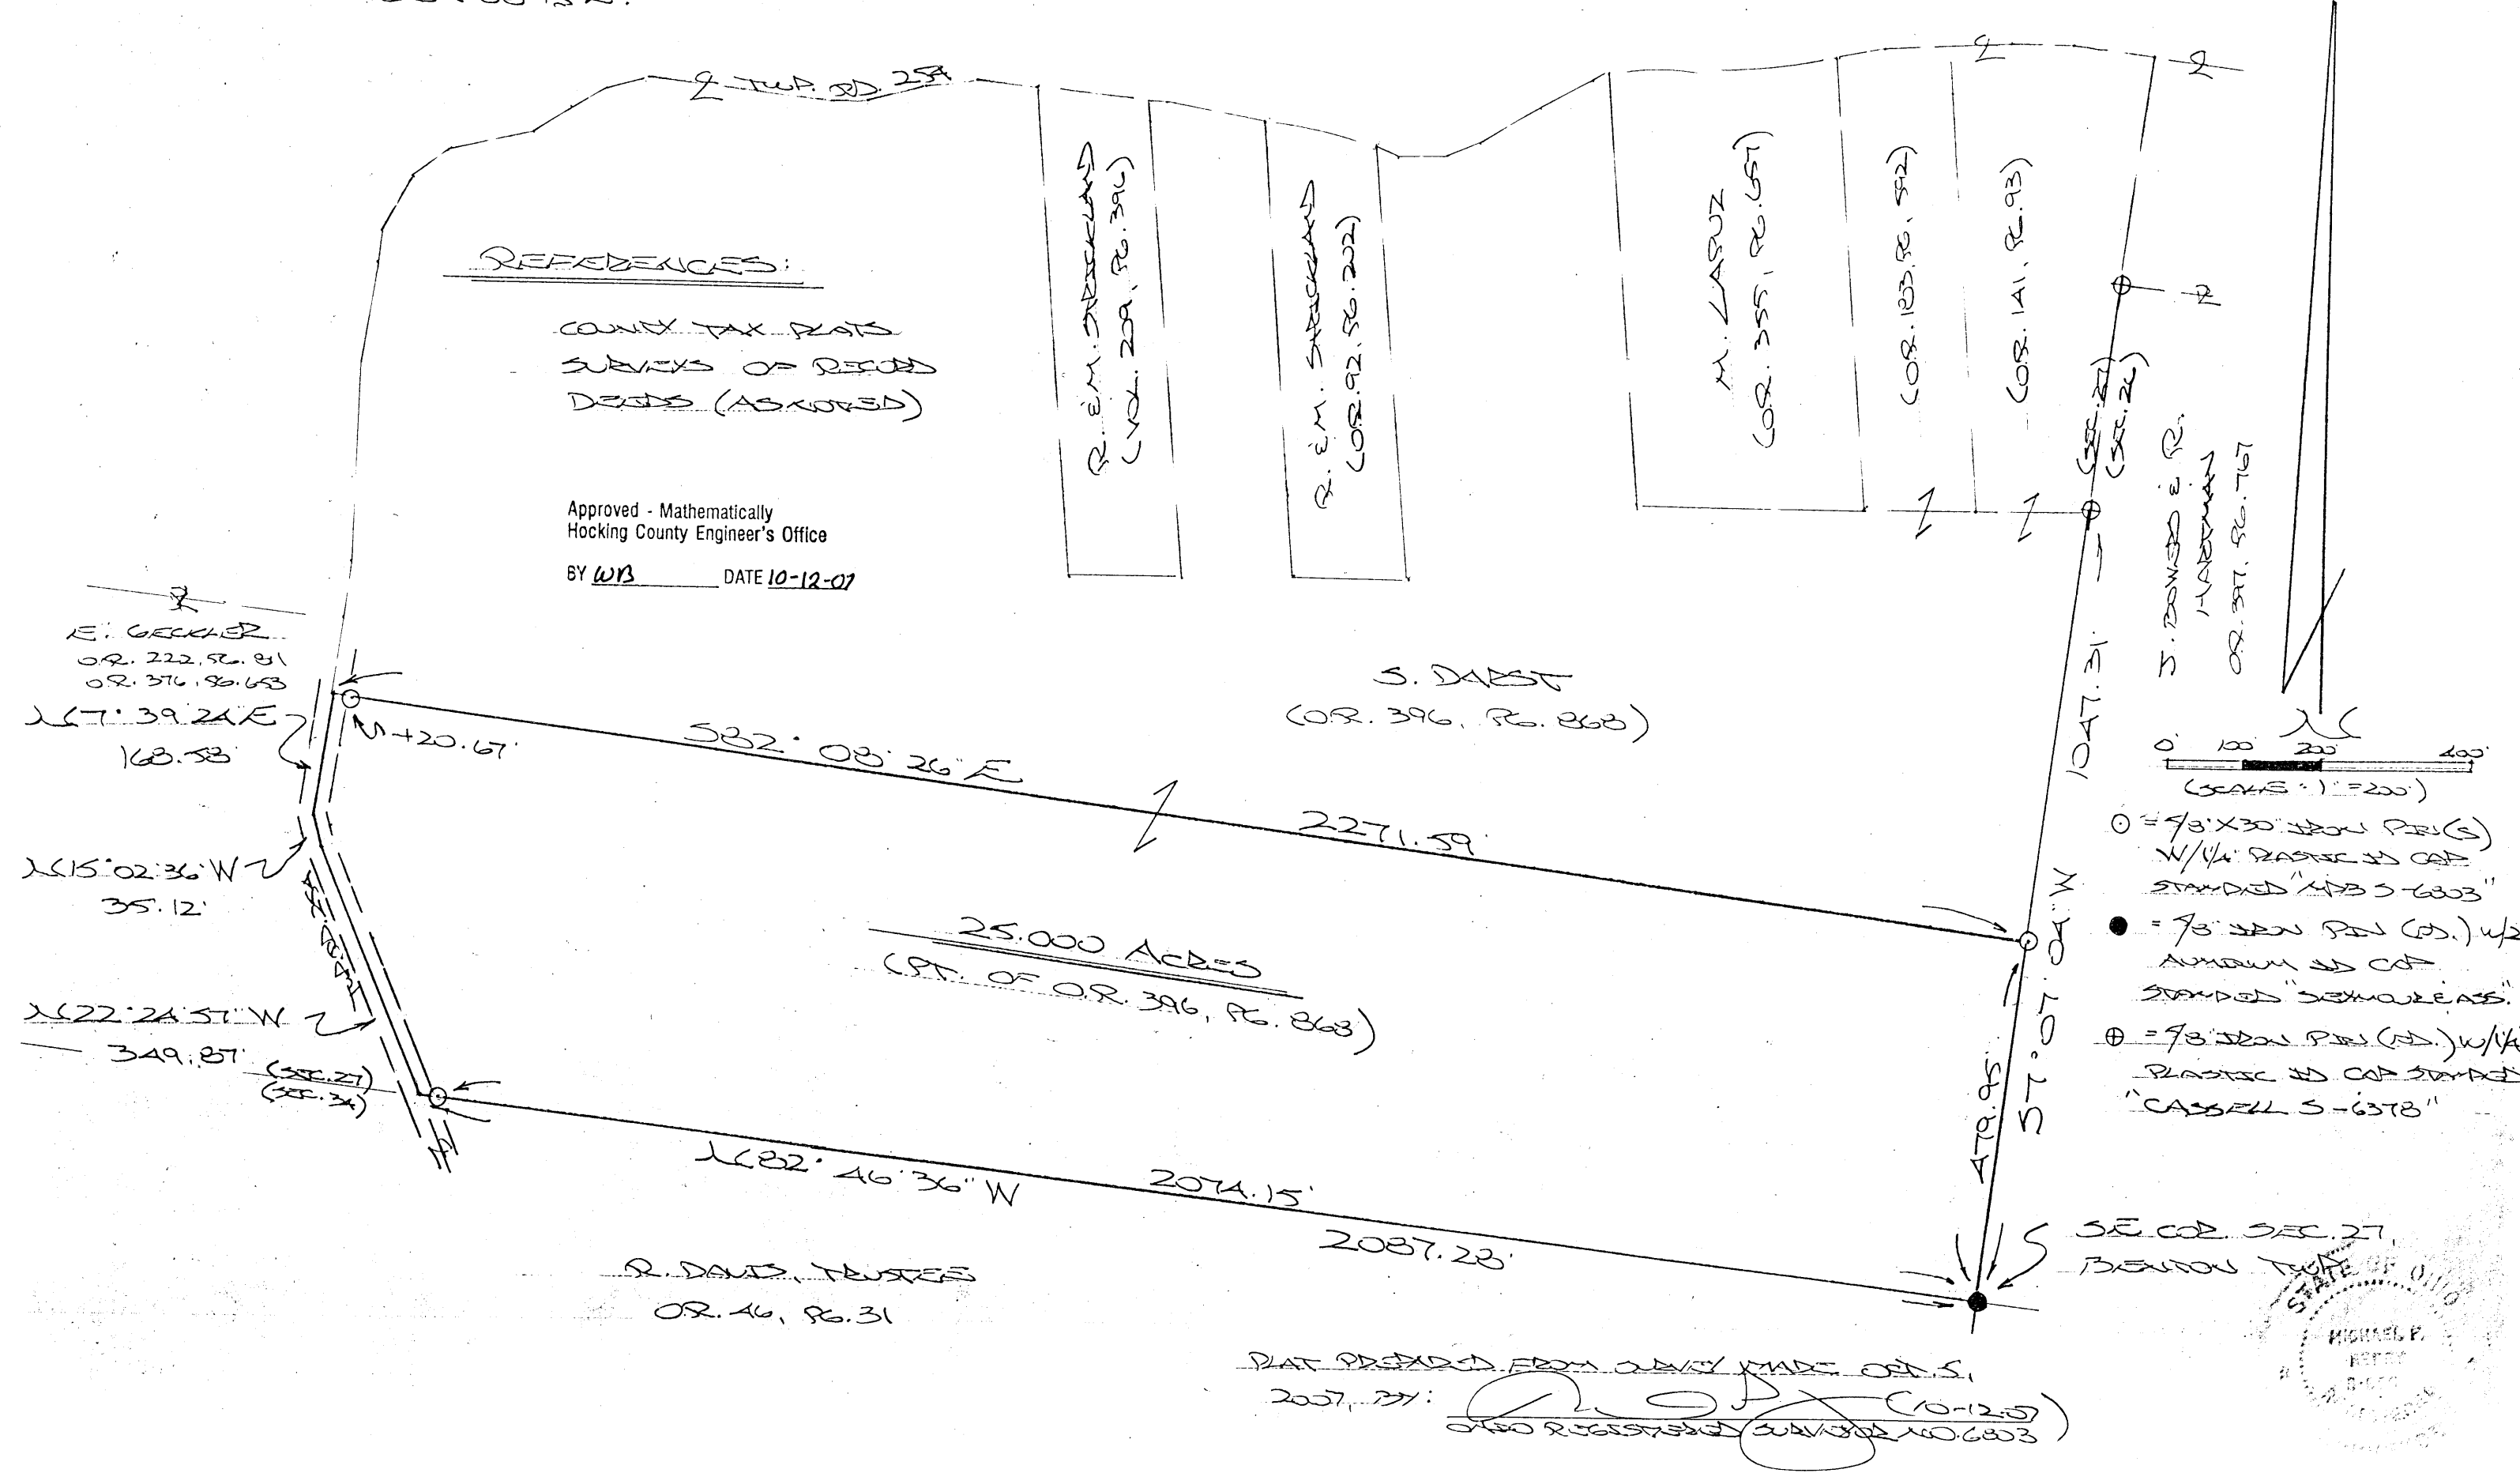 ℄ TWP. RD. 254
℄
REFERENCES:
COUNTY TAX PLATS
SURVEYS OF RECORD
DEEDS (AS NOTED)
Approved - Mathematically
Hocking County Engineer's Office
BY WB DATE 10-12-07
R. & M. STRICKLAND
(VOL. 209, PG. 396)
R. & M. STRICKLAND
(O.R. 92, PG. 202)
M. LAPUZ
(O.R. 355, PG. 657)
(O.R. 183, PG. 592)
(O.R. 141, PG. 93)
(SEC. 27)
(SEC. 26)
J. BOWERS & R.
HARTMAN
O.R. 397, PG. 767
E. GECKLER
O.R. 222, PG. 811
O.R. 376, PG. 653
N 7° 39' 24" E
168.58'
+20.67'
N 15° 02' 36" W
35.12'
N 22° 24' 57" W
349.87'
(SEC. 27)
(SEC. 34)
S. DARST
(O.R. 396, PG. 868)
S 82° 08' 26" E
2271.59'
25.000 ACRES
(PT. OF O.R. 396, PG. 868)
1047.31'
S 7° 07' 04" W
479.95'
N
0' 100' 200' 400'
(SCALE: 1" = 200')
⊙ = 5/8" X 30" IRON PIN(S)
W/ 1 1/4" PLASTIC ID CAP
STAMPED "MPB S-6803"
● = 5/8" IRON PIN (FD.) W/2
ALUMINUM ID CAP
STAMPED "SEYMOUR & ASS."
⊕ = 5/8" IRON PIN (FD.) W/ 1 1/4
PLASTIC ID CAP STAMPED
"CASSELL S-6378"
N 82° 46' 36" W
2074.15'
2087.28'
R. DAVIS, TRUSTEE
O.R. 46, PG. 31
SE COR. SEC. 27,
BENTON TWP.
STATE OF OHIO
MICHAEL P.
PLAT PREPARED FROM SURVEY MADE OCT. 5,
2007, BY:
(10-12-07)
OHIO REGISTERED SURVEYOR NO. 6803